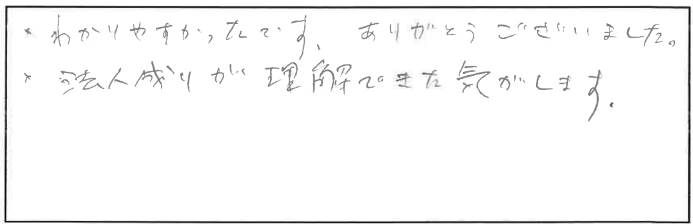 * わかりやすかったです。ありがとうございました。
* 法人成りが理解できた気がします。